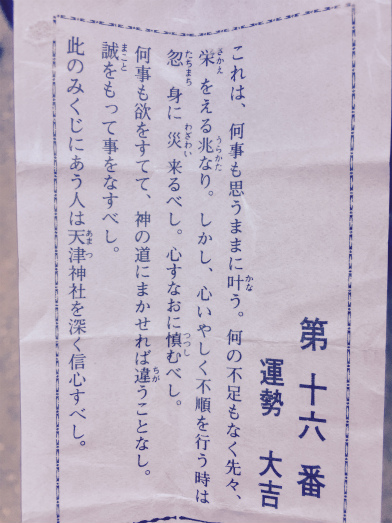 第十六番
運勢 大吉
これは、何事も思うままに叶う。何の不足もなく先々、
栄をえる兆なり。しかし、心いやしく不順を行う時は
忽 身に 災 来るべし。心すなおに慎むべし。
何事も欲をすてて、神の道にまかせれば違うことなし。
誠をもって事をなすべし。
此のみくじにあう人は天津神社を深く信心すべし。